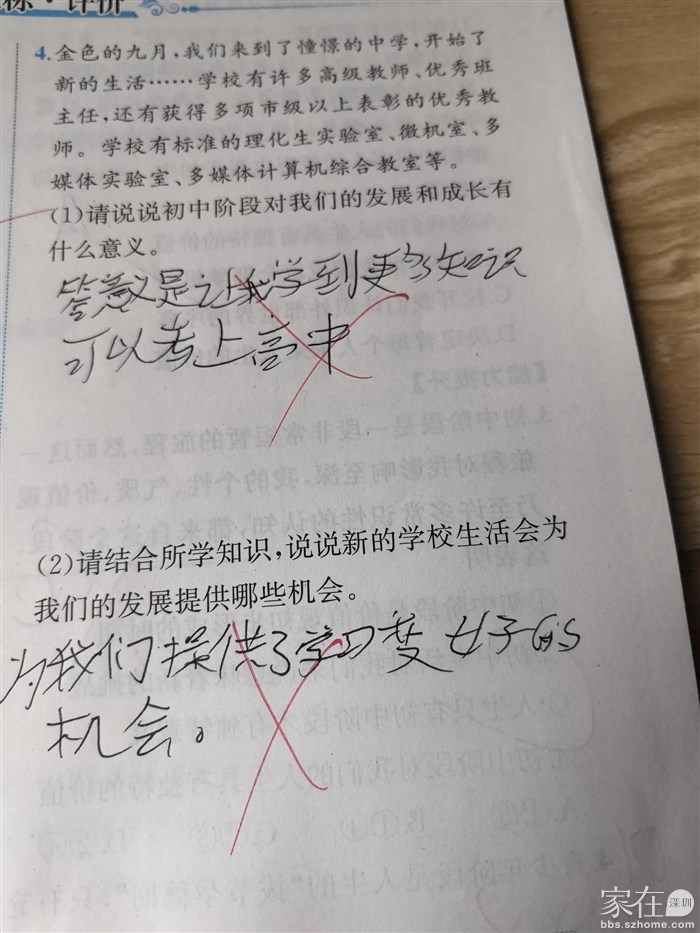 标·评价
4.金色的九月,我们来到了憧憬的中学,开始了
新的生活……学校有许多高级教师、优秀班
主任,还有获得多项市级以上表彰的优秀教
师。学校有标准的理化生实验室、微机室、多
媒体实验室、多媒体计算机综合教室等。
(1)请说说初中阶段对我们的发展和成长有
什么意义。
答意义是让我学到更多知识
可以考上高中
(2)请结合所学知识,说说新的学校生活会为
我们的发展提供哪些机会。
为我们提供了学习变好的
机会。
家在深圳
bbs.szhome.com